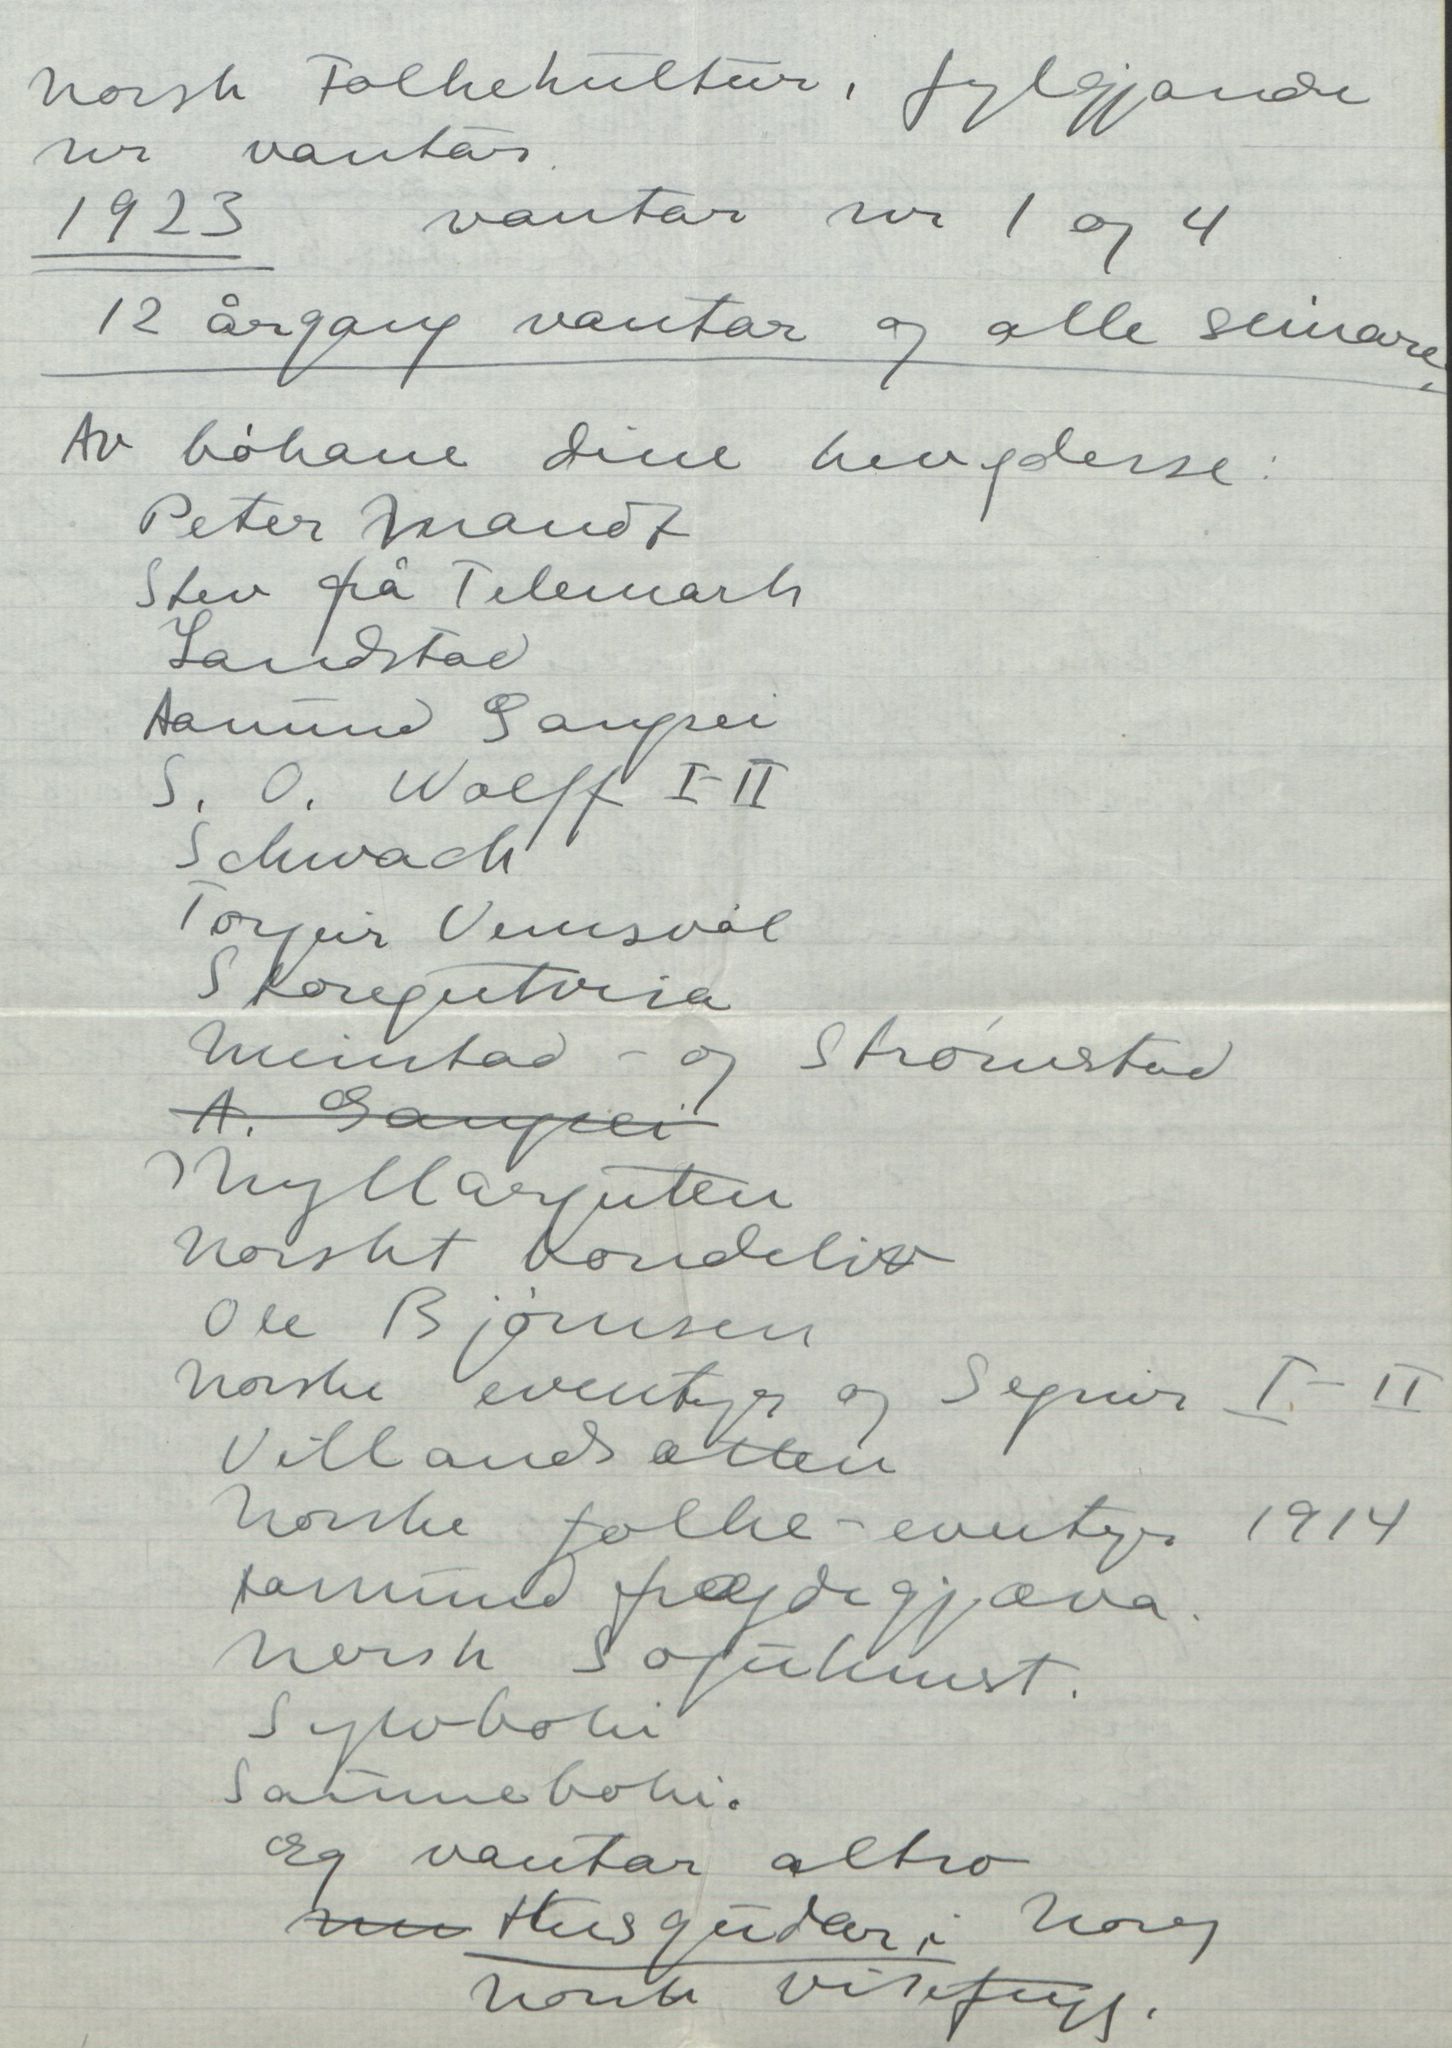 Norsk Folkekultur, fylgjande
nr vantar.
1923 vantar nr 1 og 4
12 årgang vantar og alle seinare.
Av bókane dine hev eg desse:
Peter Mandt
Stev frå Telemark
Landstad
Aamund Gangsei
S. O. Wolff I-II
Schwach
Torgeir Vemsvål
Storegutvisa
Meinstad - og Strómstad
A. Gangsei
Myllarguten
Norskt bondeliv
Ole Bjórnsen
Norske eventyr og Segner I-II
Villandsætten
Norske folke-eventyr 1914
Aamund frægdegjæva.
Norsk Sogukunst.
Sylvboki
Sanneboki.
Eg vantar altso
Husgudar i Noreg
Norsk visefugg.